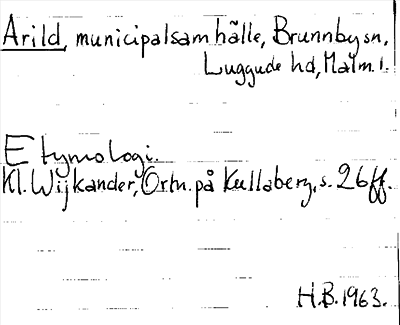 Arild, municipalsamhälle, Brunnby sn,
Luggude hd, Malm. l.
Etymologi.
Kl. Wijkander, Ortn. på Kullaberg, s. 26 ff.
H.B. 1963.